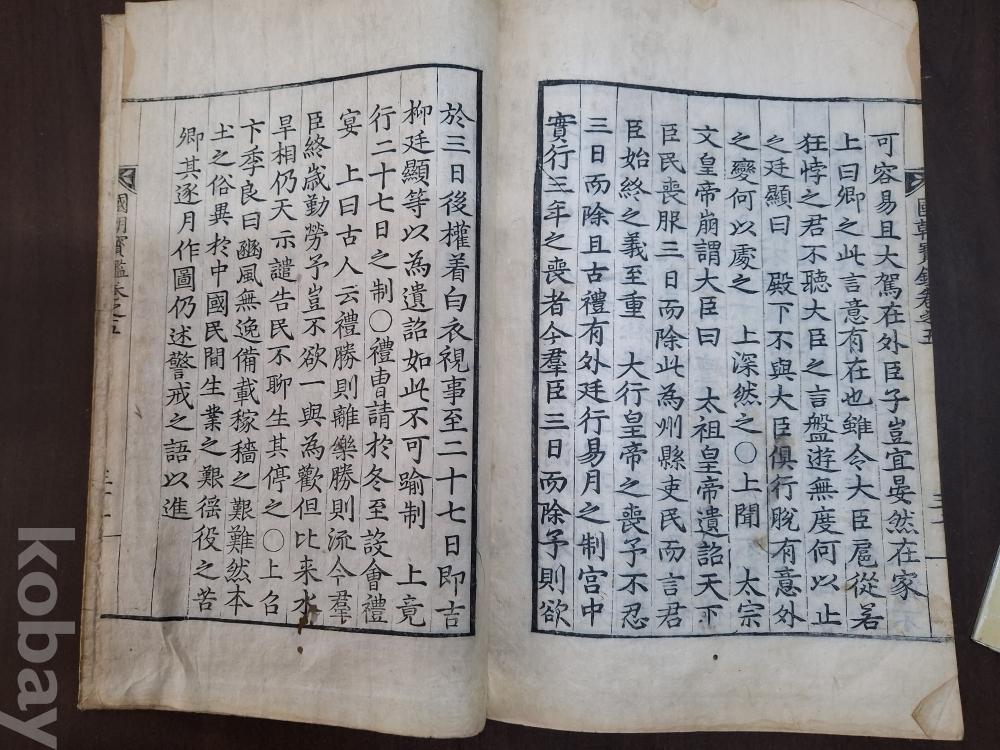 可容易且大駕在外臣子豈宜晏然在家
上曰卿之此言意有在也雖令大臣扈從若
狂悖之君不聽大臣之言盤遊無度何以止
之廷顯曰 殿下不與大臣俱行脫有意外
之變何以處之 上深然之○上聞 太宗
文皇帝崩謂大臣曰 太祖皇帝遺詔天下
臣民喪服三日而除此為州縣吏民而言君
臣始終之義至重 大行皇帝之喪予不忍
三日而除且古禮有外廷行易月之制宮中
實行三年之喪者今羣臣三日而除予則欲
國朝寶鑑卷之五
於三日後權着白衣視事至二十七日即吉
柳廷顯等以為遺詔如此不可踰制 上竟
行二十七日之制○禮曹請於冬至設會禮
宴 上曰古人云禮勝則離樂勝則流今羣
臣終歲勤勞予豈不欲一與為歡但比来水
旱相仍天示譴告民不聊生其停之○上召
卞季良曰豳風無逸備載稼穡之艱難然本
土之俗異於中國民間生業之艱徭役之苦
卿其逐月作圖仍述警戒之語以進
國朝寶鑑卷之五
kobay